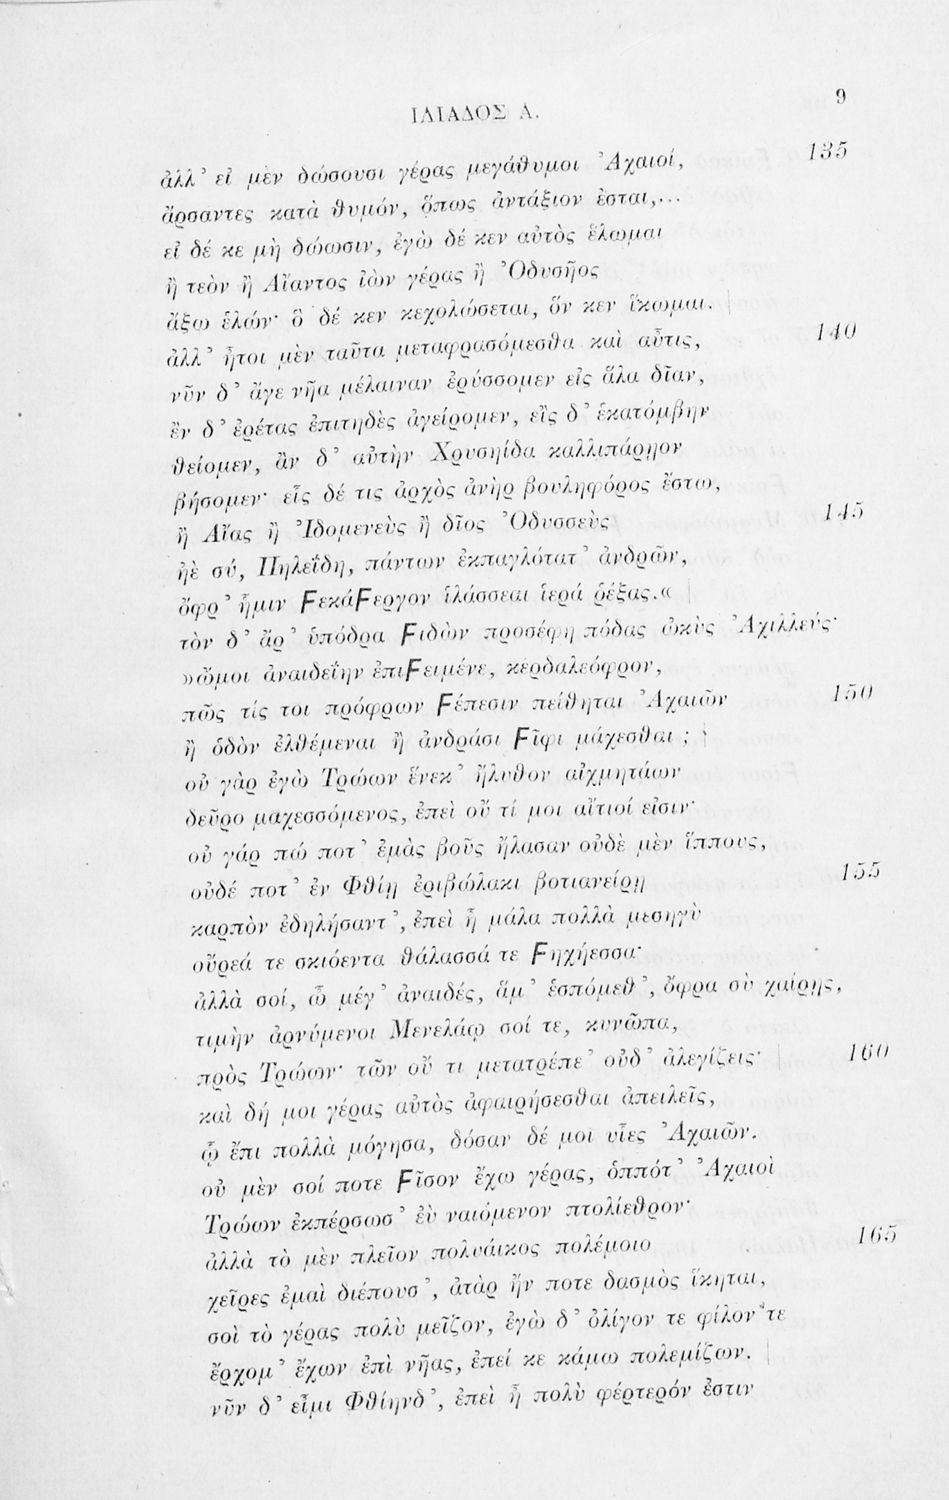 ΙΛΙΑΔΟΣ Α.
9
ἀλλ’ εἰ μὲν δώσουσι γέρας μεγάθυμοι Ἀχαιοί, 135
ἄρσαντες κατὰ θυμόν, ὅπως ἀντάξιον ἔσται,...
εἰ δέ κε μὴ δώωσιν, ἐγὼ δέ κεν αὐτὸς ἕλωμαι
ἢ τεὸν ἢ Αἴαντος ἰὼν γέρας ἢ Ὀδυσῆος
ἄξω ἑλών· ὃ δέ κεν κεχολώσεται, ὅν κεν ἵκωμαι.
ἀλλ’ ἤτοι μὲν ταῦτα μεταφρασόμεσθα καὶ αὖτις, 140
νῦν δ’ ἄγε νῆα μέλαιναν ἐρύσσομεν εἰς ἅλα δῖαν,
ἒν δ’ ἐρέτας ἐπιτηδὲς ἀγείρομεν, εἲς δ’ ἑκατόμβην
θείομεν, ἂν δ’ αὐτὴν Χρυσηίδα καλλιπάρῃον
βήσομεν· εἷς δέ τις ἀρχὸς ἀνὴρ βουληφόρος ἔστω,
ἢ Αἴας ἢ Ἰδομενεὺς ἢ δῖος Ὀδυσσεὺς 145
ἠὲ σύ, Πηλεΐδη, πάντων ἐκπαγλότατ’ ἀνδρῶν,
ὄφρ’ ἧμιν ϝεκάϝεργον ἱλάσσεαι ἱερά ῥέξας.«
τὸν δ’ ἄρ’ ὑπόδρα ϝιδὼν προσέφη πόδας ὠκὺς Ἀχιλλεύς·
»ὤμοι ἀναιδεΐην ἐπιϝειμένε, κερδαλεόφρον,
πῶς τίς τοι πρόφρων ϝέπεσιν πείθηται Ἀχαιῶν 150
ἢ ὁδὸν ἐλθέμεναι ἢ ἀνδράσι ϝῖφι μάχεσθαι;
οὐ γὰρ ἐγὼ Τρώων ἕνεκ’ ἤλυθον αἰχμητάων
δεῦρο μαχεσσόμενος, ἐπεὶ οὔ τί μοι αἴτιοί εἰσιν·
οὐ γάρ πώ ποτ’ ἐμὰς βοῦς ἤλασαν οὐδὲ μὲν ἵππους,
οὐδέ ποτ’ ἐν Φθίῃ ἐριβώλακι βοτιανείρῃ 155
καρπὸν ἐδηλήσαντ’, ἐπεὶ ἦ μάλα πολλὰ μεσηγὺ
οὔρεά τε σκιόεντα θάλασσά τε ϝηχήεσσα·
ἀλλὰ σοί, ὦ μέγ’ ἀναιδές, ἅμ’ ἑσπόμεθ’, ὄφρα σὺ χαίρῃς,
τιμὴν ἀρνύμενοι Μενελάῳ σοί τε, κυνῶπα,
πρὸς Τρώων· τῶν οὔ τι μετατρέπε’ οὐδ’ ἀλεγίζεις· 160
καὶ δή μοι γέρας αὐτὸς ἀφαιρήσεσθαι ἀπειλεῖς,
ᾧ ἔπι πολλὰ μόγησα, δόσαν δέ μοι υἷες Ἀχαιῶν.
οὐ μὲν σοί ποτε ϝῖσον ἔχω γέρας, ὁππότ’ Ἀχαιοὶ
Τρώων ἐκπέρσωσ’ ἐὺ ναιόμενον πτολίεθρον·
ἀλλὰ τὸ μὲν πλεῖον πολυάικος πολέμοιο 165
χεῖρες ἐμαὶ διέπουσ’, ἀτὰρ ἤν ποτε δασμὸς ἵκηται,
σοὶ τὸ γέρας πολὺ μεῖζον, ἐγὼ δ’ ὀλίγον τε φίλον τε
ἔρχομ’ ἔχων ἐπὶ νῆας, ἐπεί κε κάμω πολεμίζων.
νῦν δ’ εἶμι Φθίηνδ’, ἐπεὶ ἦ πολὺ φέρτερόν ἐστιν